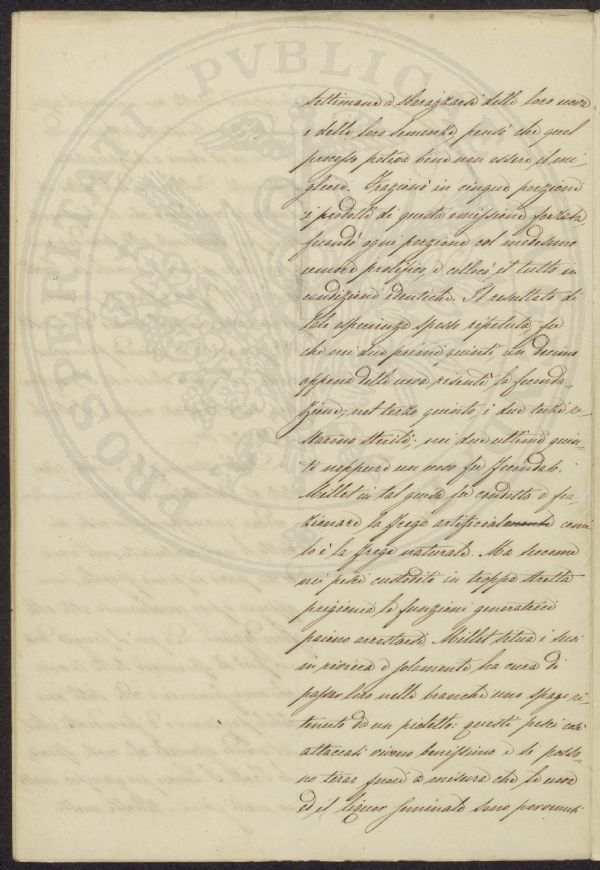 PROSPERITATI PVBLICAE
settimane a sbarazzarsi delle loro uova
e della loro semenza, pensò che quel
processo poteva bene non essere il mi-
gliore. Frazionò in cinque porzioni
i prodotti di questa emissione forzata,
fecondò ogni porzione col medesimo
umore prolifico, e collocò il tutto in
condizioni identiche. Il resultato di
tale esperienza spesso ripetuta, fu
che nei due primi quinti un decimo
appena delle uova risentì la feconda-
zione; nel terzo quinto, i due terzi re-
starono sterili; nei due ultimi quin-
ti neppure un uovo fu fecondato.
Millet in tal guisa fu condotto a fra-
zionare la frega artificiale come
lo è la frega naturale. Ma siccome
nei pesci custoditi in troppo stretta
prigionia le funzioni generatrici
paiono arrestarsi Millet situa i suoi
in riviera e solamente ha cura di
passar loro nelle branchie uno spago ri-
tenuto da un pioletto: questi pesci così
attaccati vivono benissimo e si posso-
no tirar fuori a misura che le uova
ed il liquor seminale sono pervenuti